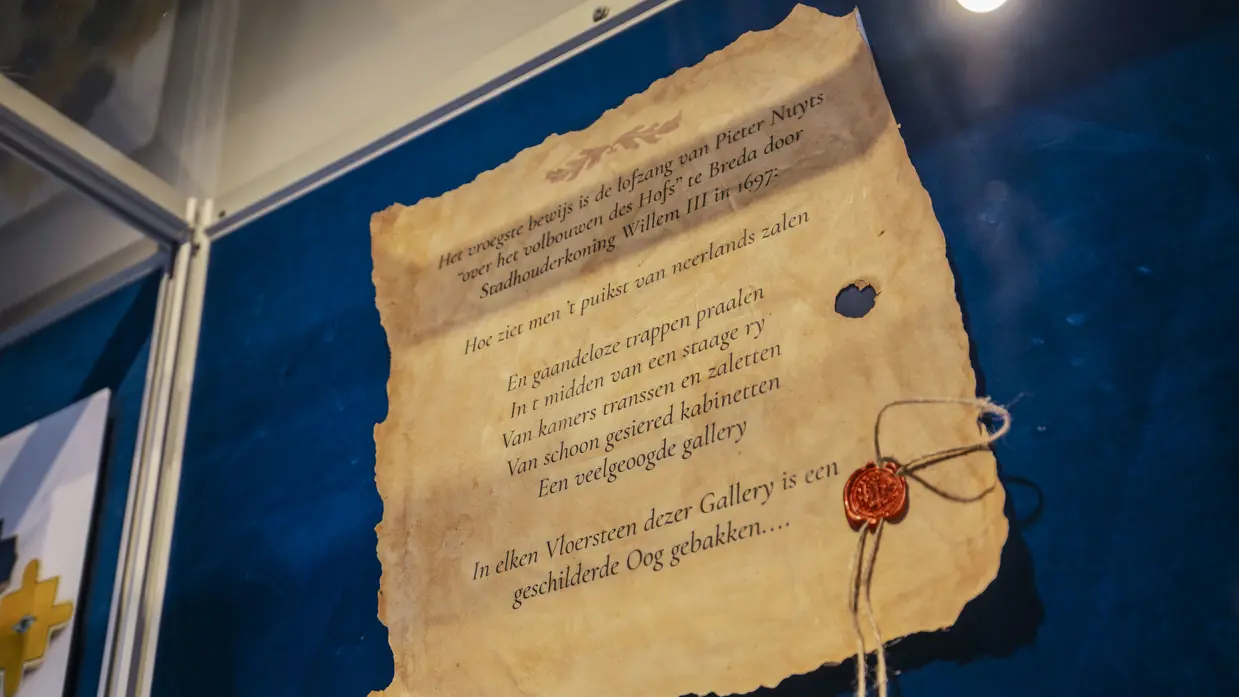 Het vroegste bewijs is de lofzang van Pieter Nuyts
"over het volbouwen des Hofs" te Breda door
Stadhouderkoning Willem III in 1697:
Hoe ziet men 't puikst van neerlands zalen
En gaandeloze trappen praalen
In t midden van een staage ry
Van kamers transsen en zaletten
Van schoon gesiered kabinetten
Een veelgeoogde gallery
In elken Vloersteen dezer Gallery is een
geschilderde Oog gebakken....